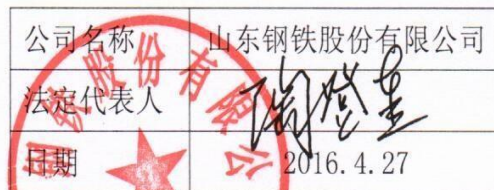 公司名称 山东钢铁股份有限公司
法定代表人 陶登奎
日期 2016.4.27
钢铁股份有限公